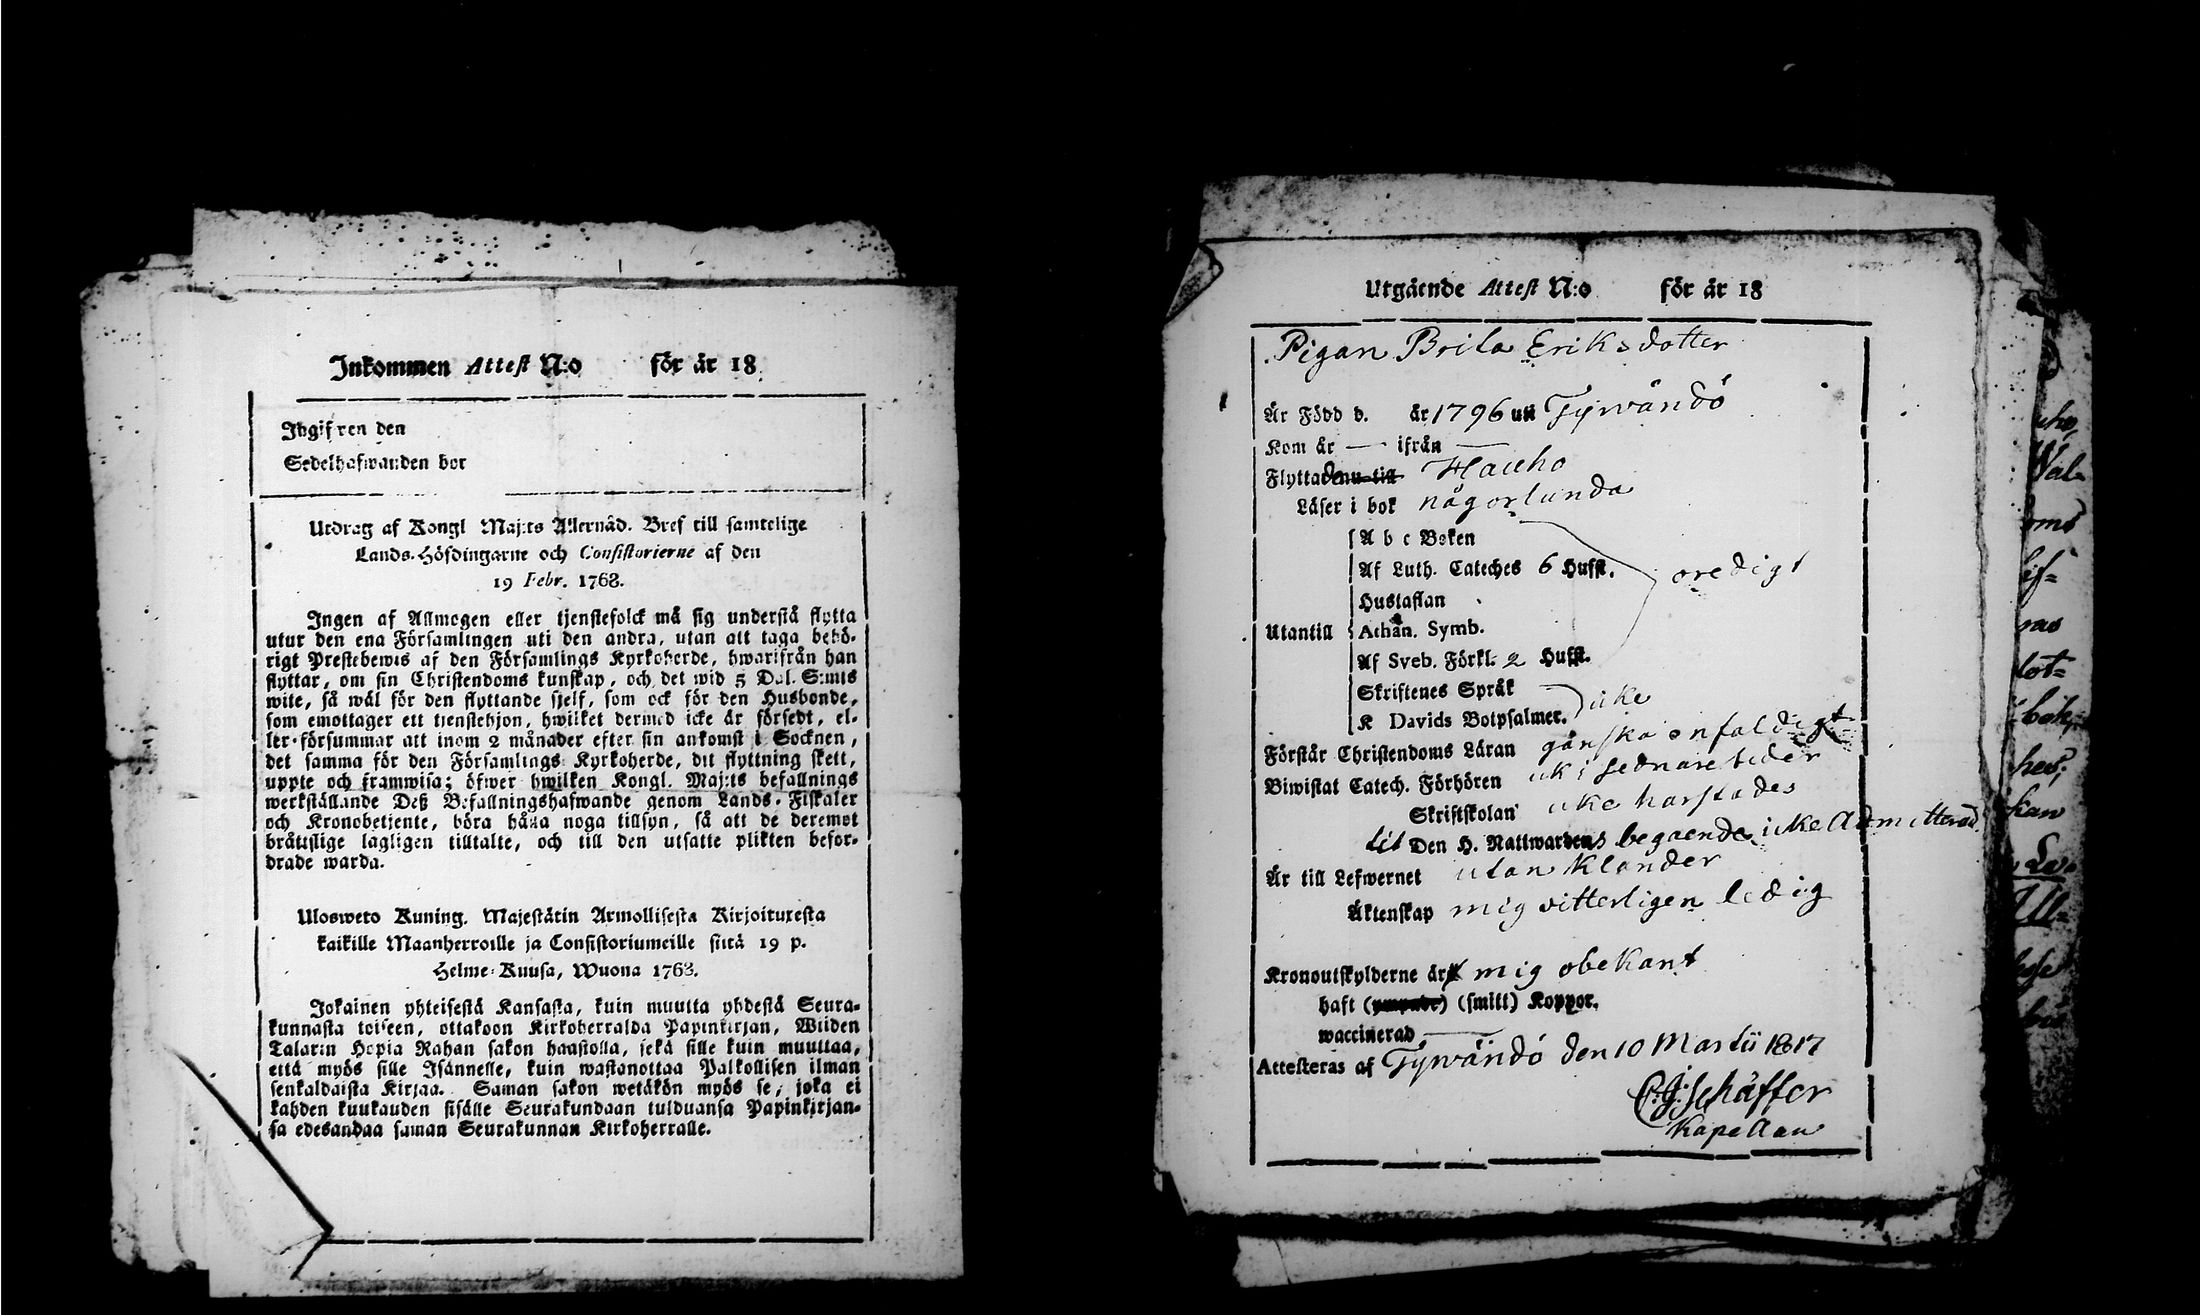 Inkommen Attest N:o för år 18
Ingifven den
Sedelhafwanden bor
Utdrag af Kongl Maj:ts Allernåd. Bref till samtelige
Lands-Höfdingarne och Consistorierne af den
19 Febr. 1768.
Ingen af Allmogen eller tjenstefolck må sig understå flytta
utur den ena Församlingen uti den andra, utan att taga behö-
rigt Prestebewis af den Församlings Kyrkoherde, hwarifrån han
flyttar, om sin Christendoms kunskap, och det wid 5 Dal. S:mts
wite, så wäl för den flyttande sjelf, som ock för den Husbonde,
som emottager ett tjenstehjon, hwilket dermed icke är försedt, el-
ler försummar att inom 2 månader efter sin ankomst i Socknen,
det samma för den Församlings Kyrkoherde, dit flyttning skett,
uppte och framwisa; öfwer hwilken Kongl. Maj:ts befallnings
werkställande Deß Befallningshafwande genom Lands-Fiskaler
och Kronobetjente, böra hålla noga tillsyn, så att de deremot
bråttslige lagligen tilltalte, och till den utsatte plikten befor-
drade warda.
Ulosweto Kuning. Majestätin Armollisesta Kirjoituxesta
kaikille Maanherroille ja Consistoriumeille siitä 19 p.
Helme-Kuusa, Wuona 1763.
Jokainen yhteisestä Kansasta, kuin muutta yhdestä Seura-
kunnasta toiseen, ottakoon Kirkoherralda Papinkirjan, Wiiden
Talarin Hopia Rahan sakon haastolla, sekä sille kuin muuttaa,
että myös sille Isännelle, kuin wastanottaa Palkollisen ilman
senkaldaista Kirjaa. Saman sakon wetäkön myös se, joka ei
kahden kuukauden sisälle Seurakundaan tulduansa Papinkirjan-
sa edesandaa saman Seurakunnan Kirkoherralle.
Utgående Attest N:o för år 18
Pigan Brita Eriksdotter
Är Född d. år 1796 uti Tyrwändö
Kom år — ifrån —
Flyttade nu till Hauho
Läser i bok någorlunda
A b c Boken
Af Luth. Cateches 6 Hufst. oredigt
Hustaflan
Utantill Athan. Symb.
Af Sveb. Förkl. 2 Hufst.
Skriftenes Språk
K Davids Botpsalmer. icke
Förstår Christendoms Läran ganska enfaldigt
Biwistat Catech. Förhören i sednare tider
Skriftskolan icke harstädes
til Den H. Nattwardens begaende icke Admitterad
Är till Lefwernet utan klander
Äktenskap mig vitterligen ledig
Kronoutskylderne är mig obekant
haft (ympade) (smitt) Koppor.
waccinerad —
Attesteras af Tyrwändö den 10 Martii 1817
C.J. Schäffer
Kapellan